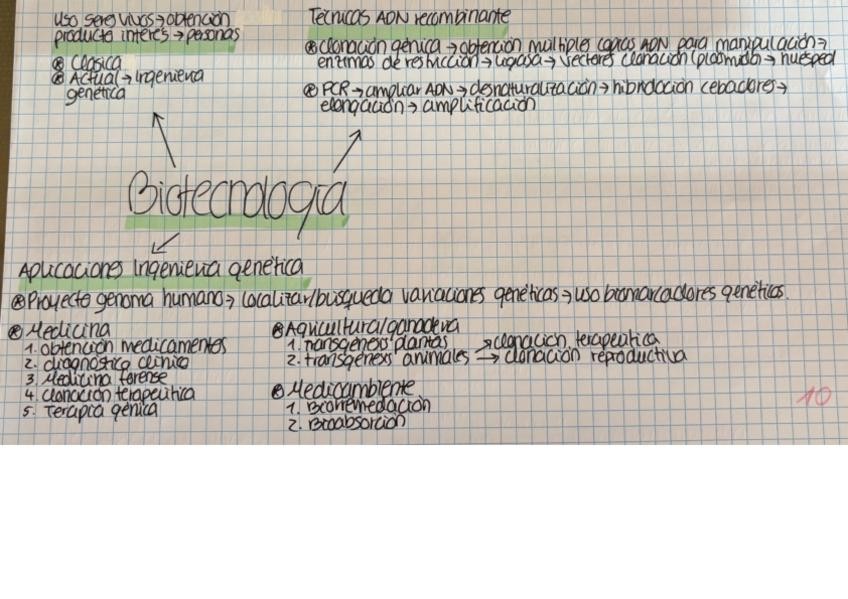 uso seres vivos → obtención
producto interés → personas
⊛ Clásica
⊛ Actual → Ingeniería
genética
Técnicas ADN recombinante
⊛ clonación génica → obtención múltiples copias ADN para manipulación →
enzimas de restricción → ligasa → vectores clonación (plásmido → huésped
⊛ PCR → ampliar ADN → desnaturalización → hibridación cebadores →
elongación → amplificación
Biotecnología
Aplicaciones Ingeniería genética
⊛ Proyecto genoma humano → localizar/búsqueda variaciones genéticas → uso biomarcadores genéticos.
⊛ Medicina
1. obtención medicamentos
2. diagnóstico clínico
3. Medicina forense
4. clonación terapeútica
5. Terapia génica
⊛ Agricultura/ganadería
1. transgénesis plantas
2. transgénesis animales → clonación terapeútica
→ clonación reproductiva
⊛ Medioambiente
1. Biorremediación
2. Bioabsorción
10